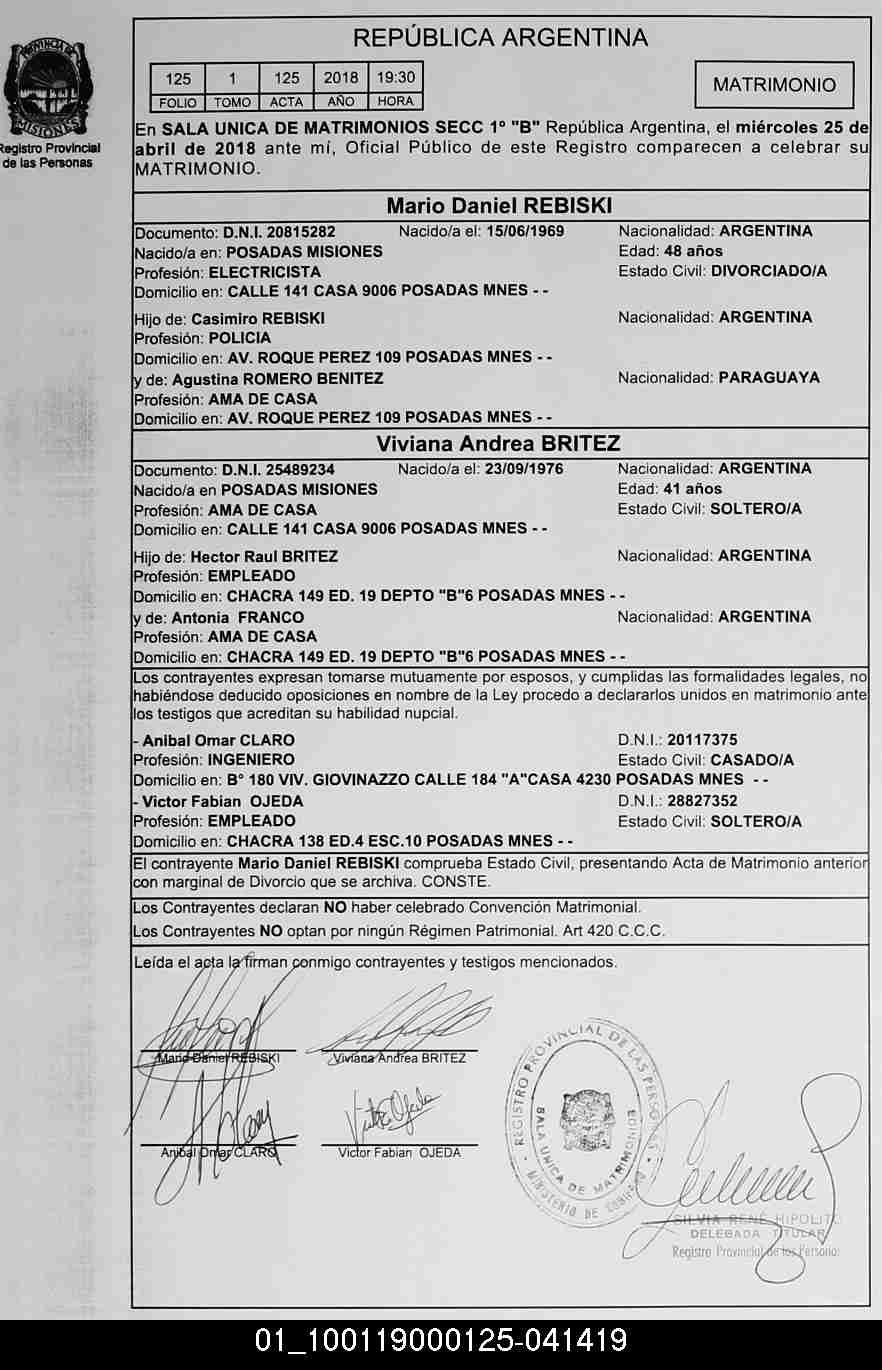 PROVINCIA DE
MISIONES
Registro Provincial
de las Personas
REPÚBLICA ARGENTINA
125 1 125 2018 19:30
FOLIO TOMO ACTA AÑO HORA
MATRIMONIO
En SALA UNICA DE MATRIMONIOS SECC 1º "B" República Argentina, el miércoles 25 de
abril de 2018 ante mí, Oficial Público de este Registro comparecen a celebrar su
MATRIMONIO.
Mario Daniel REBISKI
Documento: D.N.I. 20815282 Nacido/a el: 15/06/1969 Nacionalidad: ARGENTINA
Nacido/a en: POSADAS MISIONES Edad: 48 años
Profesión: ELECTRICISTA Estado Civil: DIVORCIADO/A
Domicilio en: CALLE 141 CASA 9006 POSADAS MNES - -
Hijo de: Casimiro REBISKI Nacionalidad: ARGENTINA
Profesión: POLICIA
Domicilio en: AV. ROQUE PEREZ 109 POSADAS MNES - -
y de: Agustina ROMERO BENITEZ Nacionalidad: PARAGUAYA
Profesión: AMA DE CASA
Domicilio en: AV. ROQUE PEREZ 109 POSADAS MNES - -
Viviana Andrea BRITEZ
Documento: D.N.I. 25489234 Nacido/a el: 23/09/1976 Nacionalidad: ARGENTINA
Nacido/a en POSADAS MISIONES Edad: 41 años
Profesión: AMA DE CASA Estado Civil: SOLTERO/A
Domicilio en: CALLE 141 CASA 9006 POSADAS MNES - -
Hijo de: Hector Raul BRITEZ Nacionalidad: ARGENTINA
Profesión: EMPLEADO
Domicilio en: CHACRA 149 ED. 19 DEPTO "B"6 POSADAS MNES - -
y de: Antonia FRANCO Nacionalidad: ARGENTINA
Profesión: AMA DE CASA
Domicilio en: CHACRA 149 ED. 19 DEPTO "B"6 POSADAS MNES - -
Los contrayentes expresan tomarse mutuamente por esposos, y cumplidas las formalidades legales, no
habiéndose deducido oposiciones en nombre de la Ley procedo a declararlos unidos en matrimonio ante
los testigos que acreditan su habilidad nupcial.
- Anibal Omar CLARO D.N.I.: 20117375
Profesión: INGENIERO Estado Civil: CASADO/A
Domicilio en: B° 180 VIV. GIOVINAZZO CALLE 184 "A"CASA 4230 POSADAS MNES - -
- Victor Fabian OJEDA D.N.I.: 28827352
Profesión: EMPLEADO Estado Civil: SOLTERO/A
Domicilio en: CHACRA 138 ED.4 ESC.10 POSADAS MNES - -
El contrayente Mario Daniel REBISKI comprueba Estado Civil, presentando Acta de Matrimonio anterior
con marginal de Divorcio que se archiva. CONSTE.
Los Contrayentes declaran NO haber celebrado Convención Matrimonial.
Los Contrayentes NO optan por ningún Régimen Patrimonial. Art 420 C.C.C.
Leída el acta la firman conmigo contrayentes y testigos mencionados.
Mario Daniel REBISKI Viviana Andrea BRITEZ
Victor Ojeda
Anibal Omar CLARO Victor Fabian OJEDA
REGISTRO PROVINCIAL DE LAS PERSONAS
SALA UNICA DE MATRIMONIOS
MINISTERIO DE GOBIERNO
SILVIA RENÉ HIPOLITO
DELEGADA TITULAR
Registro Provincial de las Personas
01_100119000125-041419